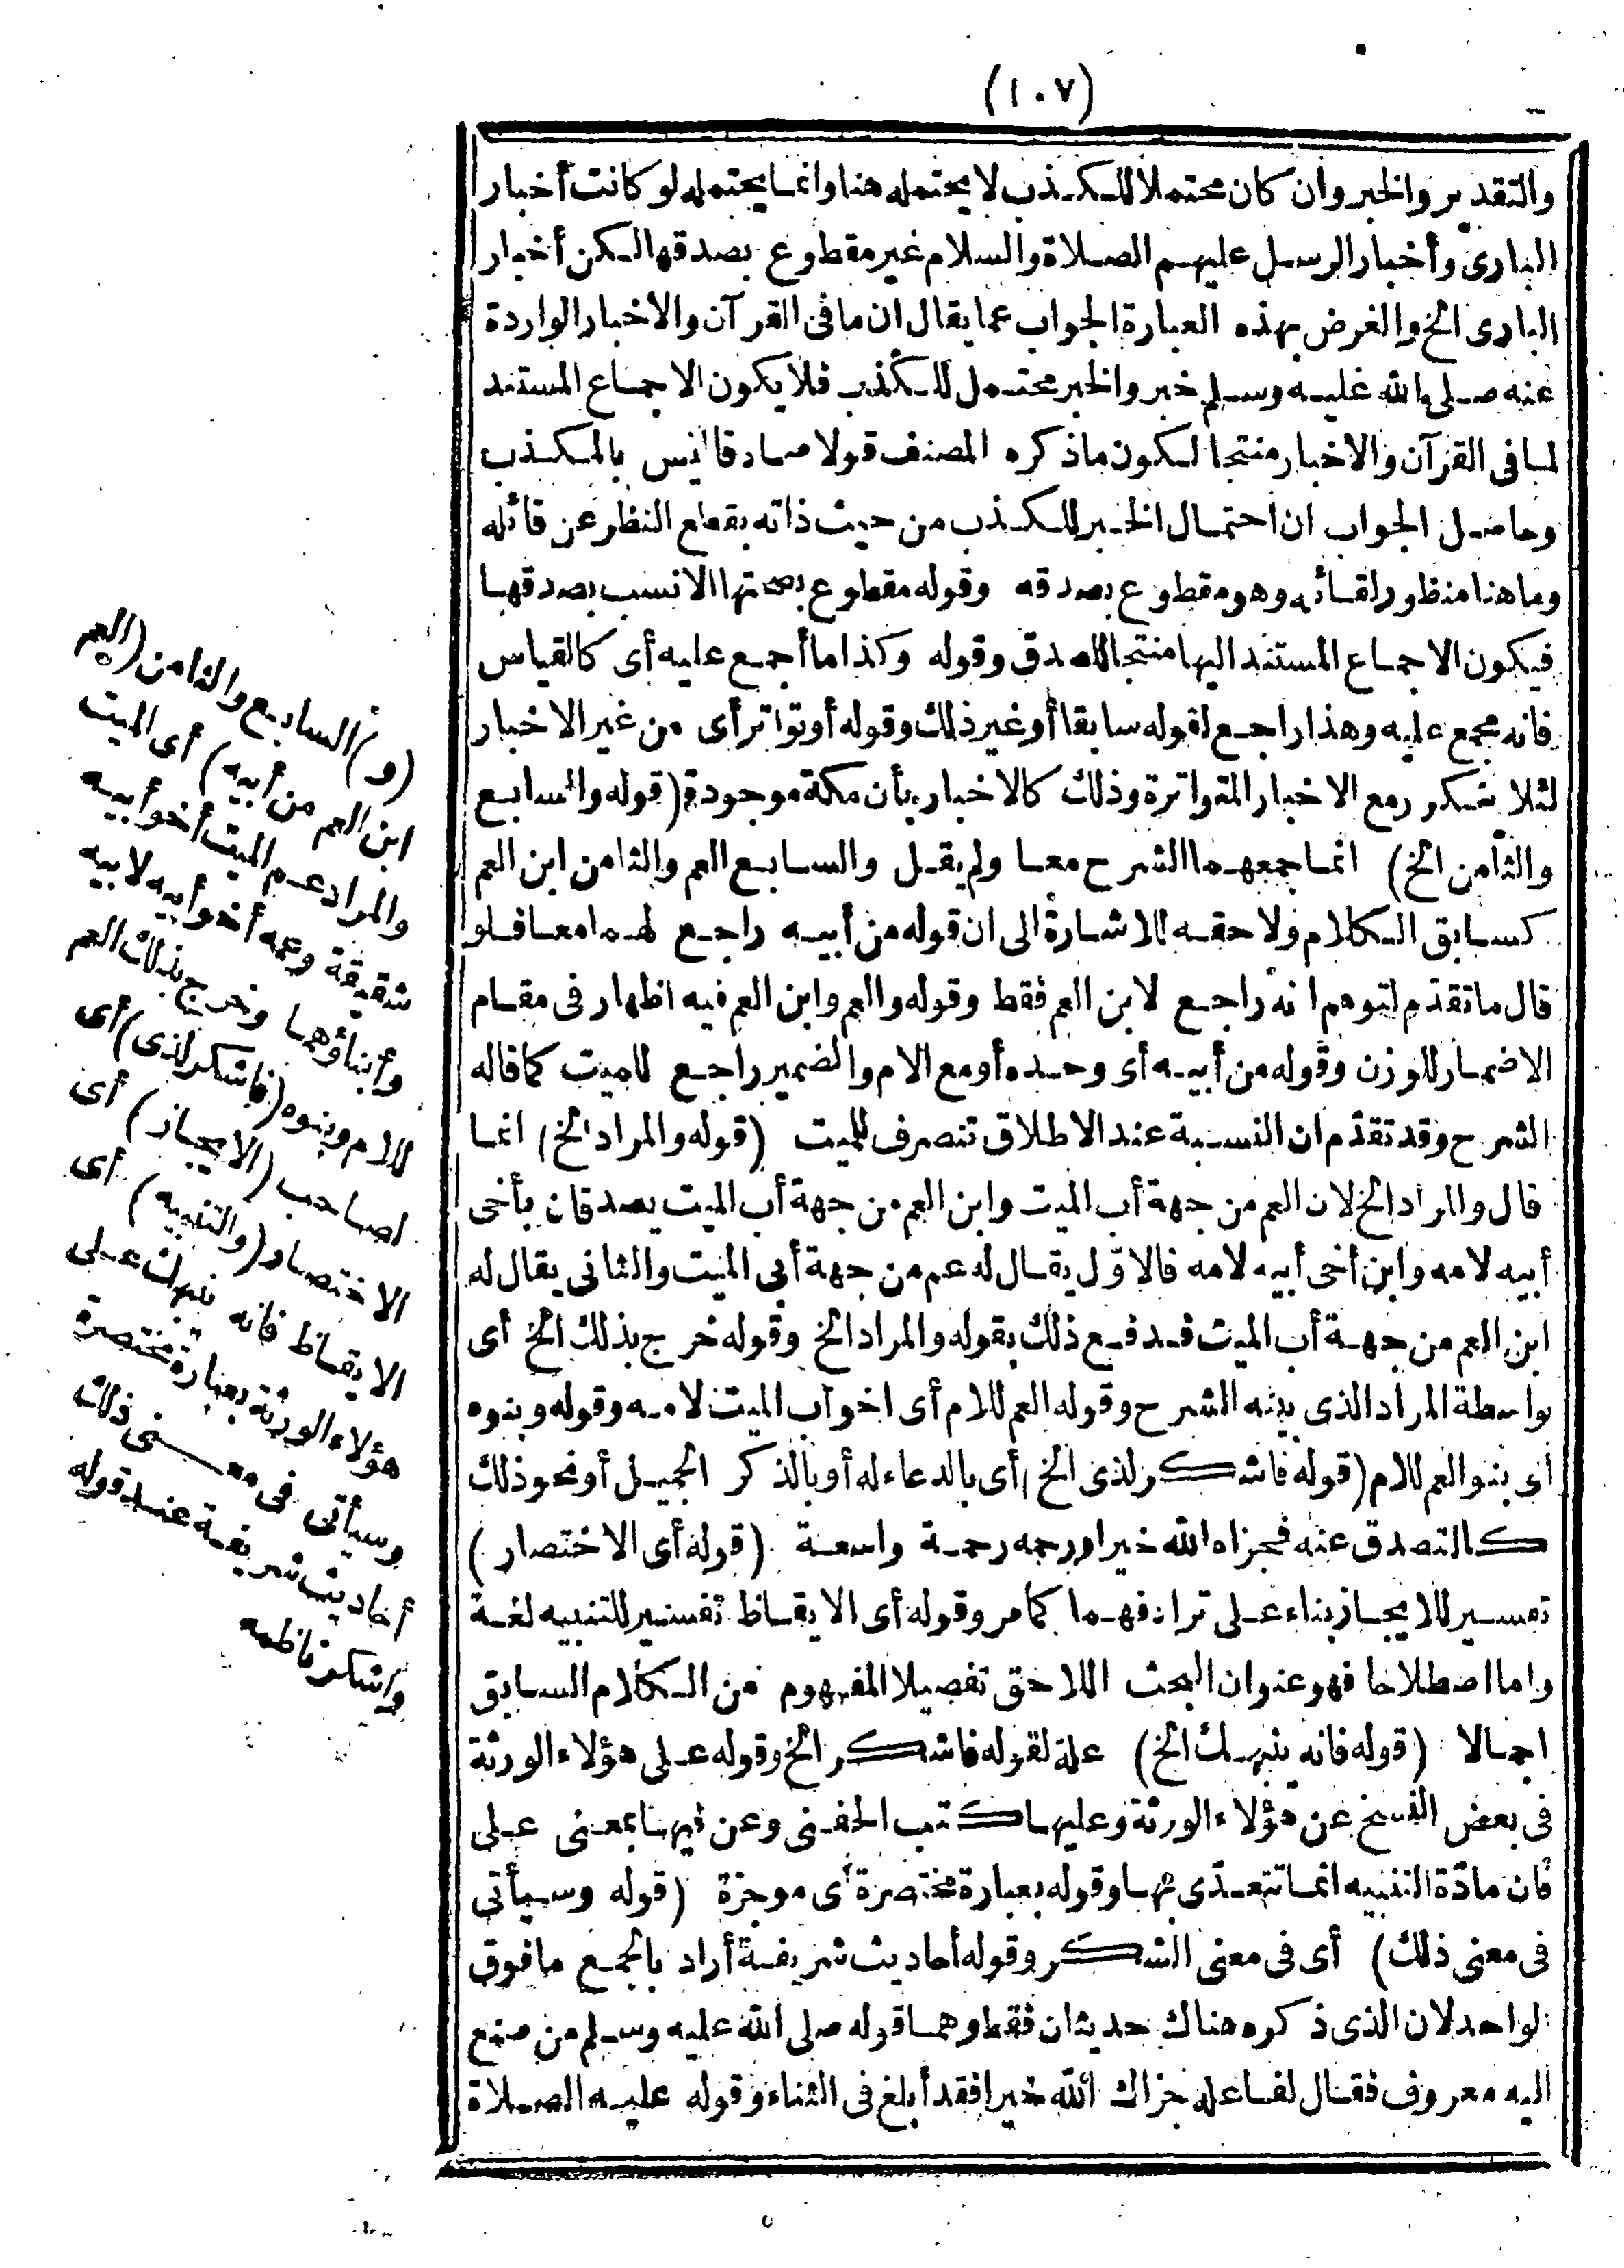 (١٠٧)
والتقدير والخبر وان كان محتملا للكذب لا يحتمله هنا وانما يحتمله لو كانت أخبار
البارئ وأخبار الرسل عليهم الصلاة والسلام غير مقطوع بصدقها لكن أخبار
البارى الخ والغرض بهذه العبارة الجواب عما يقال ان ما فى القرآن والاخبار الواردة
عنه صلى الله عليه وسلم خبر والخبر محتمل للكذب فلا يكون الاجماع المستند
لما فى القرآن والاخبار منتجا لكون ما ذكره المصنف قولا صادقا ليس بالكذب
وحاصل الجواب ان احتمال الخبر للكذب من حيث ذاته بقطع النظر عن قائله
وما هنا منظور لقائله وهو مقطوع بصدقه وقوله مقطوع بصحتها الانسب بصدقها
فيكون الاجماع المستند اليها منتجا للصدق وقوله وكذا ما أجمع عليه أى كالقياس
فانه مجمع عليه وهذا راجع لقوله سابقا أو غير ذلك وقوله أو تواتر أى من غير الاخبار
لئلا يتكرر مع الاخبار المتواترة وذلك كالاخبار بأن مكة موجودة (قوله والسابع
والثامن الخ) انما جمعهما الشرح معا ولم يقل والسابع العم والثامن ابن العم
كسابق الكلام ولاحقه للاشارة الى ان قوله من أبيه راجع لهما معا فلو
قال ما تقدم لتوهم انه راجع لابن العم فقط وقوله والعم وابن العم فيه اظهار فى مقام
الاضمار للوزن وقوله من أبيه أى وحده أو مع الام والضمير راجع للميت كما قاله
الشرح وقد تقدم ان النسبة عند الاطلاق تنصرف للميت (قوله والمراد الخ) انما
قال والمراد الخ لان العم من جهة أب الميت وابن العم من جهة أب الميت يصدقان بأخى
أبيه لامه وابن أخى أبيه لامه فالاوّل يقال له عم من جهة أبى الميت والثانى يقال له
ابن العم من جهة أب الميت فدفع ذلك بقوله والمراد الخ وقوله خرج بذلك الخ أى
بواسطة المراد الذى بينه الشرح وقوله العم للام أى اخو أب الميت لامه وقوله وبنوه
أى بنو العم للام (قوله فاشكر لذى الخ) أى بالدعاء له أو بالذكر الجميل أو نحو ذلك
كالتصدق عنه فجزاه الله خيرا ورحمه رحمة واسعة (قوله أى الاختصار)
تفسير للايجاز بناء على ترادفهما كما مر وقوله أى الايقاظ تفسير للتنبيه لغة
واما اصطلاحا فهو عنوان البحث اللاحق تفصيلا المفهوم من الكلام السابق
اجمالا (قوله فانه ينبهك الخ) علة لقوله فاشكر الخ وقوله على هؤلاء الورثة
فى بعض النسخ عن هؤلاء الورثة وعليها كتب الحفنى وعن فيها بمعنى على
فان مادّة التنبيه انما تتعدّى بها وقوله بعبارة مختصرة أى موجزة (قوله وسيأتى
فى معنى ذلك) أى فى معنى الشكر وقوله أحاديث شريفة أراد بالجمع ما فوق
الواحد لان الذى ذكره هناك حديثان فقط وهما قوله صلى الله عليه وسلم من صنع
اليه معروف فقال لفاعله جزاك الله خيرا فقد أبلغ فى الثناء وقوله عليه الصلاة
(و) السابع والثامن (العم
ابن العم من أبيه) أى الميت
والمراد عم الميت أخو أبيه
شقيقه وعمه أخو أبيه لابيه
وأبناؤهما وخرج بذلك العم
للام وبنوه (فاشكر لذى) أى
لصاحب (الايجاز) أى
الاختصار (والتنبيه) أى
الايقاظ فانه ينبهك على
هؤلاء الورثة بعبارة مختصرة
وسيأتى فى معنى ذلك
أحاديث شريفة عند قوله
واشكر لناظمه